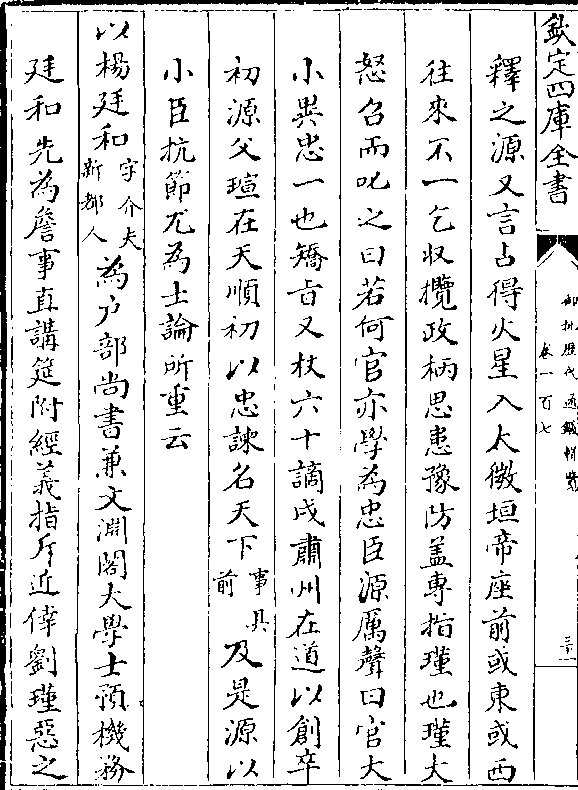 欽定四庫全書
御批歷代通鑑輯覽
卷一百七
釋之源又言占得火星入太微垣帝座前或東或西
往來不一乞收攬政柄思患豫防蓋專指瑾也瑾大
怒召而叱之曰若何官亦學為忠臣源厲聲曰官大
小異忠一也矯旨又杖六十謫戍肅州在道以創卒
初源父瑄在天順初以忠諫名天下事具前及是源以
小臣抗節尤為士論所重云
以楊廷和字介夫新都人為户部尚書兼文淵閣大學士預機務
廷和先為詹事直講筵附經義指斥近倖劉瑾惡之